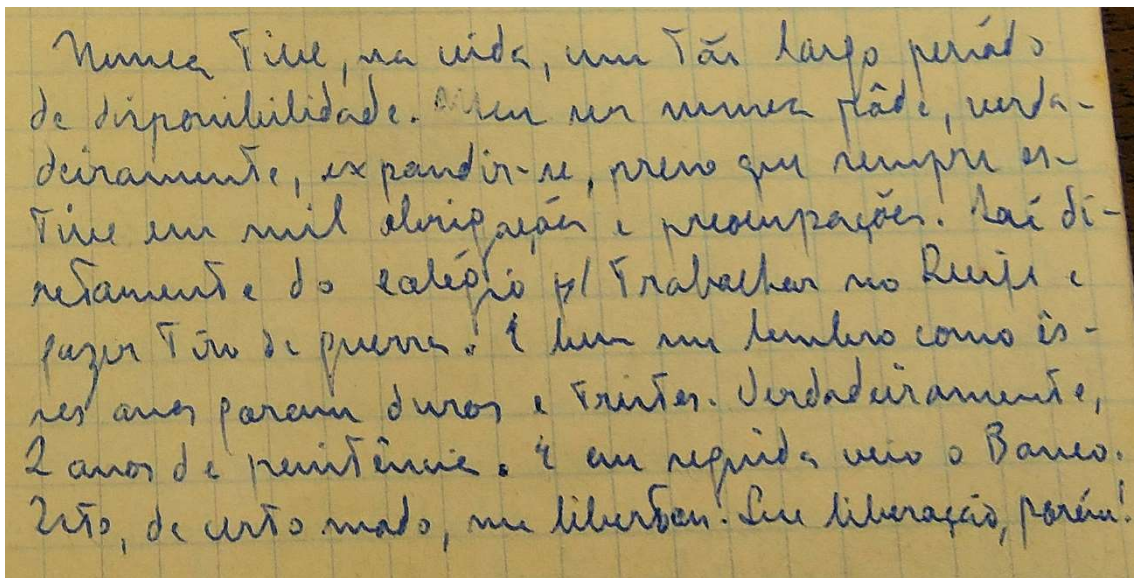 Nunca tive, na vida, um tão largo período
de disponibilidade. Meu ser nunca pôde, verda-
deiramente, expandir-se, preso que sempre es-
tive em mil obrigações e preocupações. Saí di-
retamente do colégio p/ trabalhar no Recife e
fazer Tiro de guerra. E bem me lembro como ês-
ses anos foram duros e tristes. Verdadeiramente,
2 anos de penitência. E em seguida veio o Banco.
Isto, de certo modo, me libertou. Que liberação, porém!